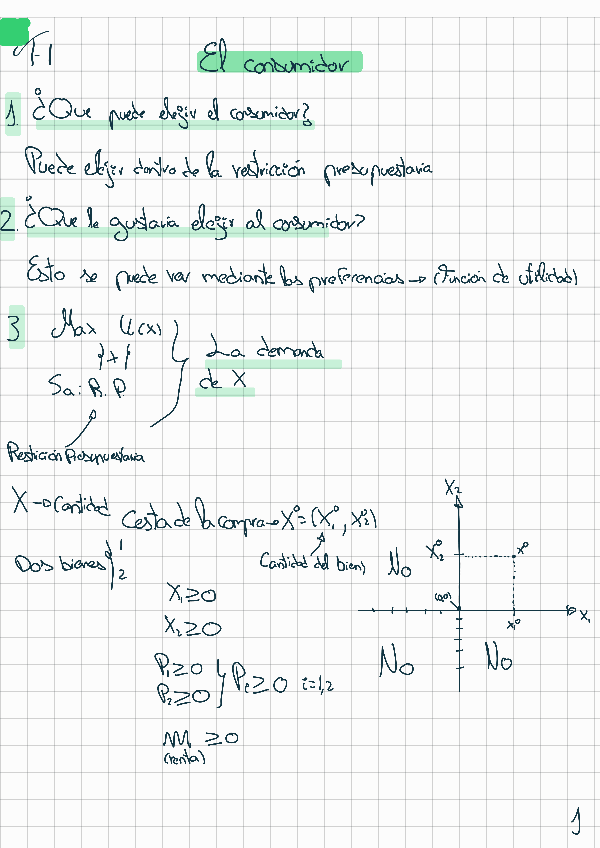 T-1
El consumidor
1. ¿Que puede elegir el consumidor?
Puede elejir dentro de la restricción presupuestaria
2. ¿Que le gustaria elegir al consumidor?
Esto se puede ver mediante las preferencias → (Función de utilidad)
3 Max U(x)
{x}
Sa: R.P.
La demanda
de X
Restricción Presupuestaria
X → Cantidad
Cesta de la compra → X⁰=(X₁⁰, X₂⁰)
Dos bienes { 1
2
Cantidad del bien 1
X₁ ≥ 0
X₂ ≥ 0
P₁ ≥ 0
P₂ ≥ 0
Pᵢ ≥ 0 i=1,2
M ≥ 0
(renta)
X₂
X₂⁰
X⁰
No
(0,0)
X₁⁰
X₁
No
No
1